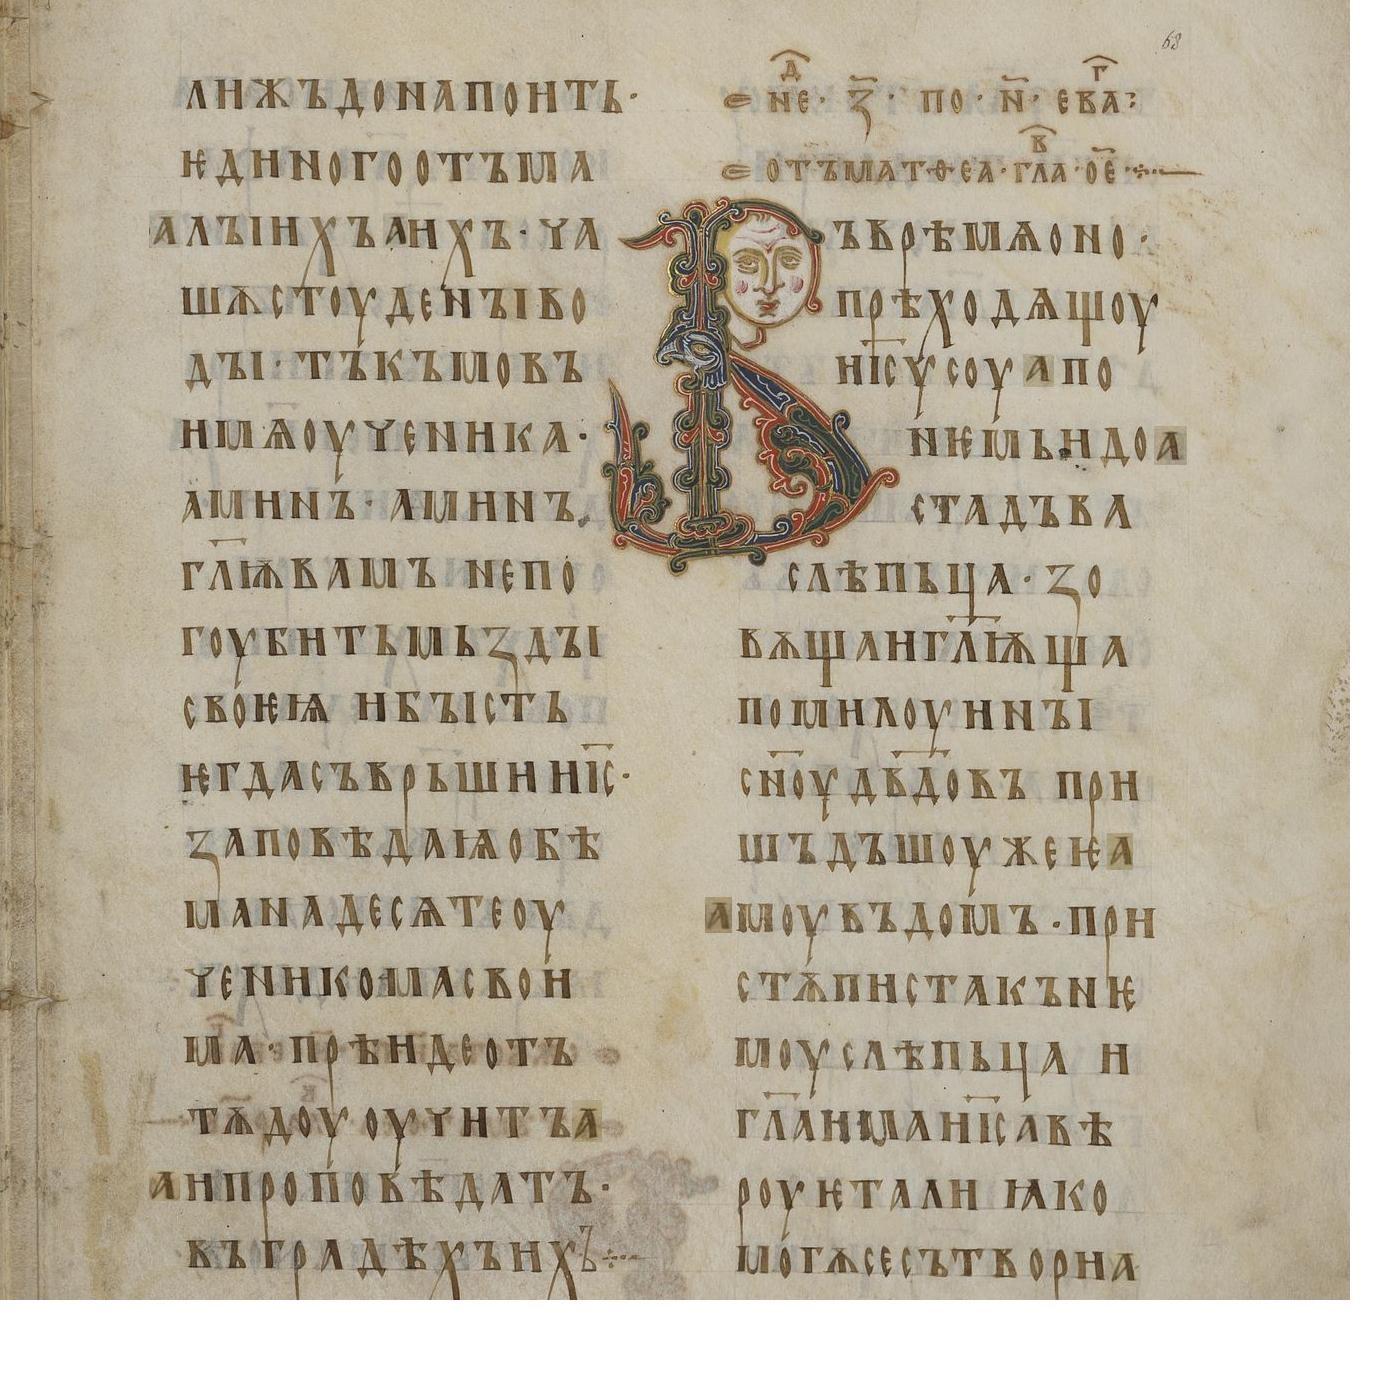 лижъдонапоить·
ѥдиногоотъма
алъіихъаихъ·ча
шѫстоуденъіво
дъі·тъкъмовъ
имѧоученика·
аминъ·аминъ
гл҃ѭвамъ непо
гоубитьмьздъі
своѥѩ ибъість
ѥгдасъврьшиис҃·
заповѣдаѩобѣ
манадесѧтеоу
ченикомасвои
ма·прѣидеотъ
тѫдоу оучитъа
аипроповѣдатъ·
въградѣхъихъ
68
не҃д· з҃· по· н҃· ева҃г:
отъматѳеа·гла҃в·ое҃·
Въврѣмѧоно·
прѣходѧщоу
иіс҃усоуапо
ниемьидоа
стадъва
слѣпьца·зо
вѫщаигл҃ѭща
помилоуинъі
сн҃оудв҃довъ при
шъдъшоужеѥа
амоувъдомъ·при
стѫпистакънѥ
моуслѣпьца и
гл҃аимаиіс҃авѣ
роуѥтали ꙗко
могѫсесътвориа